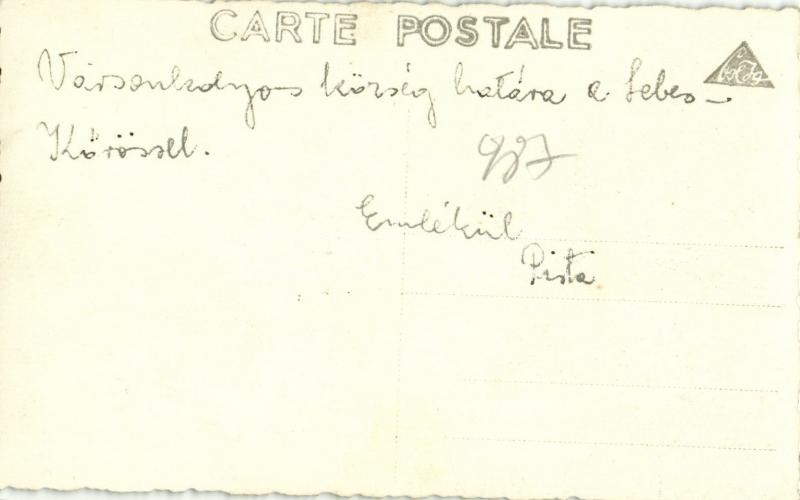 CARTE POSTALE
Vársonkolyos község határa a Sebes-
Körössel.
Emlékül
Pista